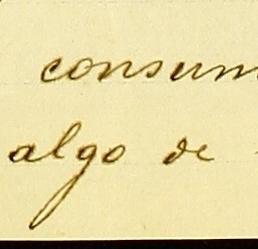 consum
algo de